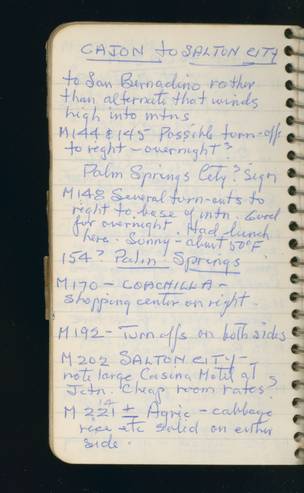 CAJON to SALTON CITY
to San Bernadino rather
than alternate that winds
high into mtns.
M144 & 145 Possible turn-offs
to right - overnight?
Palm Springs City? Sign
M148 Several turn-outs to
right to base of mtn. Good
for overnight. Had lunch
here. Sunny - about 50°F
154? Palm Springs
M170 - COACHILLA -
shopping center on right.
M192 - Turnoffs on both sides
M202 SALTON CITY -
note large Casino Motel at
Jctn. Cheap room rates?
M 221 ± Agric - cabbage
rice etc solid on either
side.